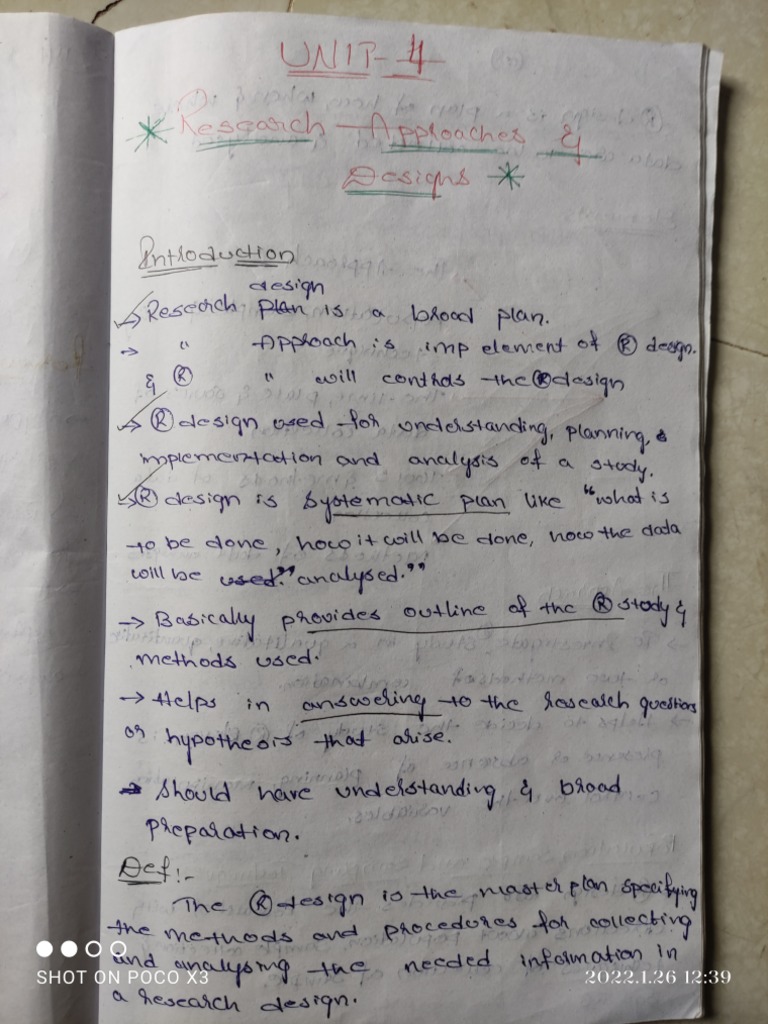 UNIT-4
* Research - Approaches &
Designs *
Introduction
design
→ Research plan is a broad plan.
→ " Approach is imp element of Ⓡ design.
& Ⓡ " will controls the Ⓡ design
→ Ⓡ design used for understanding, planning, &
implementation and analysis of a study.
→ Ⓡ design is systematic plan like "what is
to be done, how it will be done, how the data
will be used." analysed.""
→ Basically provides outline of the Ⓡ study &
methods used.
→ Helps in answering to the research questions
or hypothesis that arise.
→ Should have understanding & broad
preparation.
Def :-
The Ⓡ design is the master plan specifying
the methods and procedures for collecting
and analysing the needed information in
a research design.
SHOT ON POCO X3
2022.1.26 12:39